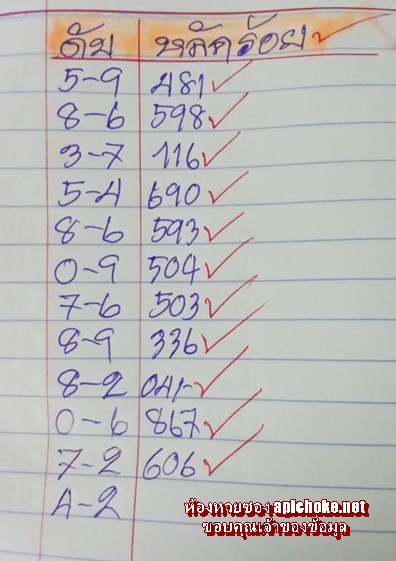 ดับ หลักร้อย
5-9 481
8-6 598
3-7 116
5-4 690
8-6 593
0-9 504
7-6 503
8-9 336
8-2 041
0-6 867
7-2 606
4-2
ห้องหวยซอง apichoke.net
ขอบคุณเจ้าของข้อมูล